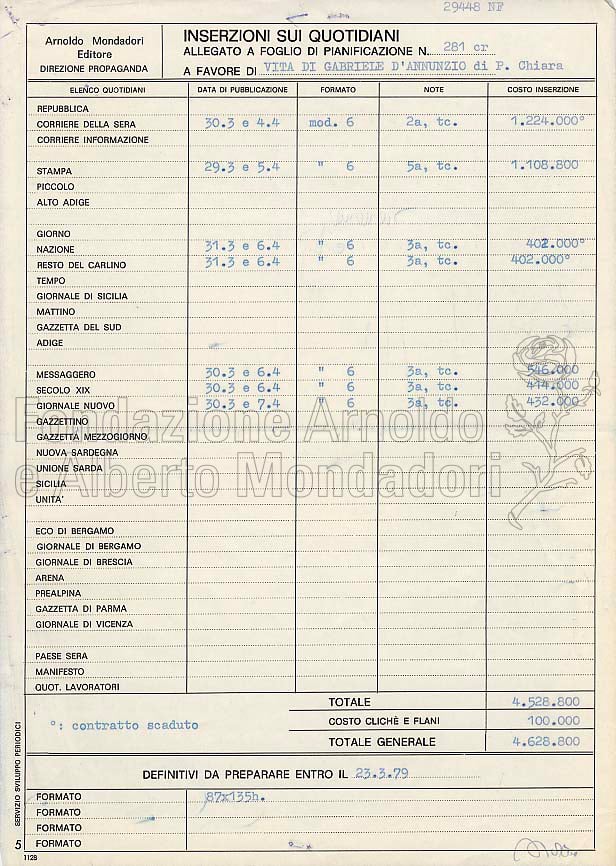 29448 NF
Arnoldo Mondadori
Editore
DIREZIONE PROPAGANDA
INSERZIONI SUI QUOTIDIANI
ALLEGATO A FOGLIO DI PIANIFICAZIONE N. 281 cr
A FAVORE DI VITA DI GABRIELE D'ANNUNZIO di P. Chiara
ELENCO QUOTIDIANI DATA DI PUBBLICAZIONE FORMATO NOTE COSTO INSERZIONE
REPUBBLICA
CORRIERE DELLA SERA 30.3 e 4.4 mod. 6 2a, tc. 1.224.000°
CORRIERE INFORMAZIONE
STAMPA 29.3 e 5.4 " 6 5a, tc. 1.108.800
PICCOLO
ALTO ADIGE
GIORNO
NAZIONE 31.3 e 6.4 " 6 3a, tc. 402.000°
RESTO DEL CARLINO 31.3 e 6.4 " 6 3a, tc. 402.000°
TEMPO
GIORNALE DI SICILIA
MATTINO
GAZZETTA DEL SUD
ADIGE
MESSAGGERO 30.3 e 6.4 " 6 3a, tc. 546.000
SECOLO XIX 30.3 e 6.4 " 6 3a, tc. 414.000
GIORNALE NUOVO 30.3 e 7.4 " 6 3a, tc. 432.000
Fondazione Arnoldo
GAZZETTINO
GAZZETTA MEZZOGIORNO
NUOVA SARDEGNA
UNIONE SARDA
e Alberto Mondadori
SICILIA
UNITA'
ECO DI BERGAMO
GIORNALE DI BERGAMO
GIORNALE DI BRESCIA
ARENA
PREALPINA
GAZZETTA DI PARMA
GIORNALE DI VICENZA
PAESE SERA
MANIFESTO
QUOT. LAVORATORI
TOTALE 4.528.800
°: contratto scaduto COSTO CLICHÈ E FLANI 100.000
TOTALE GENERALE 4.628.800
DEFINITIVI DA PREPARARE ENTRO IL 23.3.79
FORMATO 87x135h.
FORMATO
FORMATO
FORMATO
SERVIZIO SVILUPPO PERIODICI
5
1128